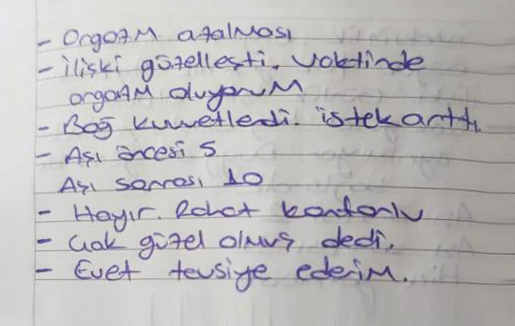 - Orgazm azalması
- ilişki güzelleşti. vaktinde
orgazm oluyorum
- Bağ kuvvetlendi. istek arttı.
- Aşı öncesi 5
Aşı sonrası 10
- Hayır. Rahat konforlu
- Çok güzel olmuş dedi.
- Evet tavsiye ederim.